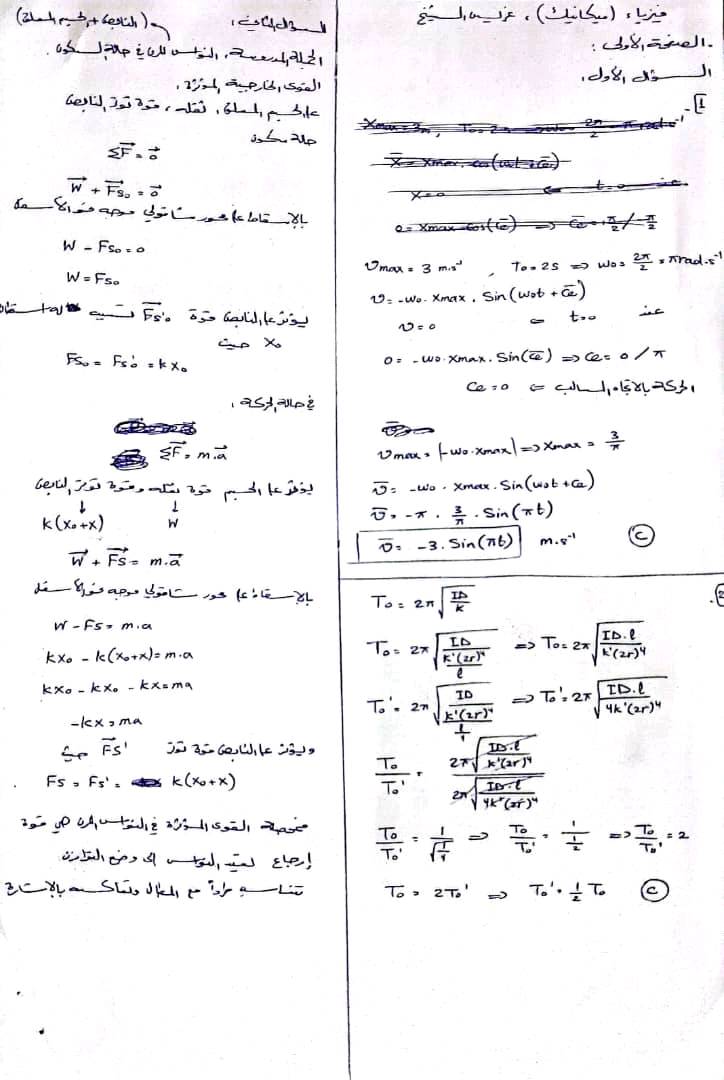 فيزياء (ميكانيك)،
الصفحة الأولى:
السؤال الأول:
1-
Vmax = 3 m.s⁻¹ , T₀ = 2s ⇒ ω₀ = 2π/2 = π rad.s⁻¹
v = -ω₀ . Xmax . Sin(ω₀t + φ̄)
عند t=0 ⇐ v=0
0 = -ω₀ . Xmax . Sin(φ̄) ⇒ φ = 0 / π
الحركة بالاتجاه السالب ⇐ φ = 0
Vmax = |-ω₀ . Xmax| ⇒ Xmax = 3/π
v̄ = -ω₀ . Xmax . Sin(ω₀t + φ̄)
v̄ = -π . 3/π . Sin(πt)
v̄ = -3 . Sin(πt) m.s⁻¹ (C)
2-
T₀ = 2π√(ID/k)
T₀ = 2π√(ID/(k'(2r)⁴/l)) ⇒ T₀ = 2π√(ID.l/(k'(2r)⁴))
T₀' = 2π√(ID/(k'(2r)⁴/(l/4))) ⇒ T₀' = 2π√(ID.l/(4k'(2r)⁴))
T₀/T₀' = 2π√(ID.l/(k'(2r)⁴)) / 2π√(ID.l/(4k'(2r)⁴))
T₀/T₀' = 1/√(1/4) ⇒ T₀/T₀' = 1/(1/2) ⇒ T₀/T₀' = 2
T₀ = 2T₀' ⇒ T₀' = 1/2 T₀ (C)
السؤال الثاني: (النابض + الجسم المعلق)
الجملة المدروسة: النواس المرن في حالة السكون.
القوى الخارجية المؤثرة:
على الجسم المعلق: ثقله، قوة توتر النابض
حالة سكون
ΣF⃗ = 0⃗
W⃗ + F⃗s₀ = 0⃗
بالإسقاط على محور شاقولي موجه نحو الأسفل
W - Fs₀ = 0
W = Fs₀
يؤثر على النابض قوة F⃗s₀' تسبب له استطالة
x₀ حيث
Fs₀ = Fs₀' = kx₀
في حالة الحركة:
ΣF⃗ = m.a⃗
يؤثر على الجسم قوة ثقله وقوة توتر النابض
k(x₀+x) W
W⃗ + F⃗s = m.a⃗
بالإسقاط على محور شاقولي موجه نحو الأسفل
W - Fs = m.a
kx₀ - k(x₀+x) = m.a
kx₀ - kx₀ - kx = ma
-kx = ma
ويؤثر على النابض قوة توتر F⃗s' حيث
Fs = Fs' = k(x₀+x)
فمحصلة القوى المؤثرة في النواس المرن هي قوة
إرجاع تعيد النواس إلى وضع التوازن
تتناسب طرداً مع المطال وتعاكسه بالإشارة